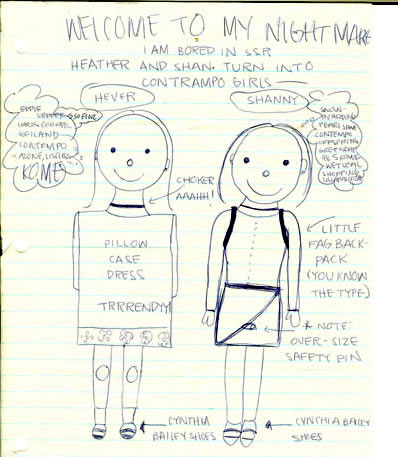 WELCOME TO MY NIGHTMARE
I AM BORED IN S.S.P.
HEATHER AND SHAN. TURN INTO
CONTRAMPO GIRLS
HEVER
SHANNY
EDDIE
VEDDER
CHRIS CORNELL
WEILAND
CONTEMPO
KOME
SNOW-
BOARDING
PEARL JAM
CONTEMPO
OFFSPRING
GREEN DAY
98.5 KOME
WET SEAL
SHOPPING
CHOKER
AAAHH!
PILLOW
CASE
DRESS
TRRRENDY!
LITTLE
FAG BACK-
PACK
(YOU KNOW
THE TYPE)
* NOTE:
OVER-SIZE
SAFTY PIN
CYNTHIA
BAILEY SHOES
CYNTHIA BAILEY
SHOES